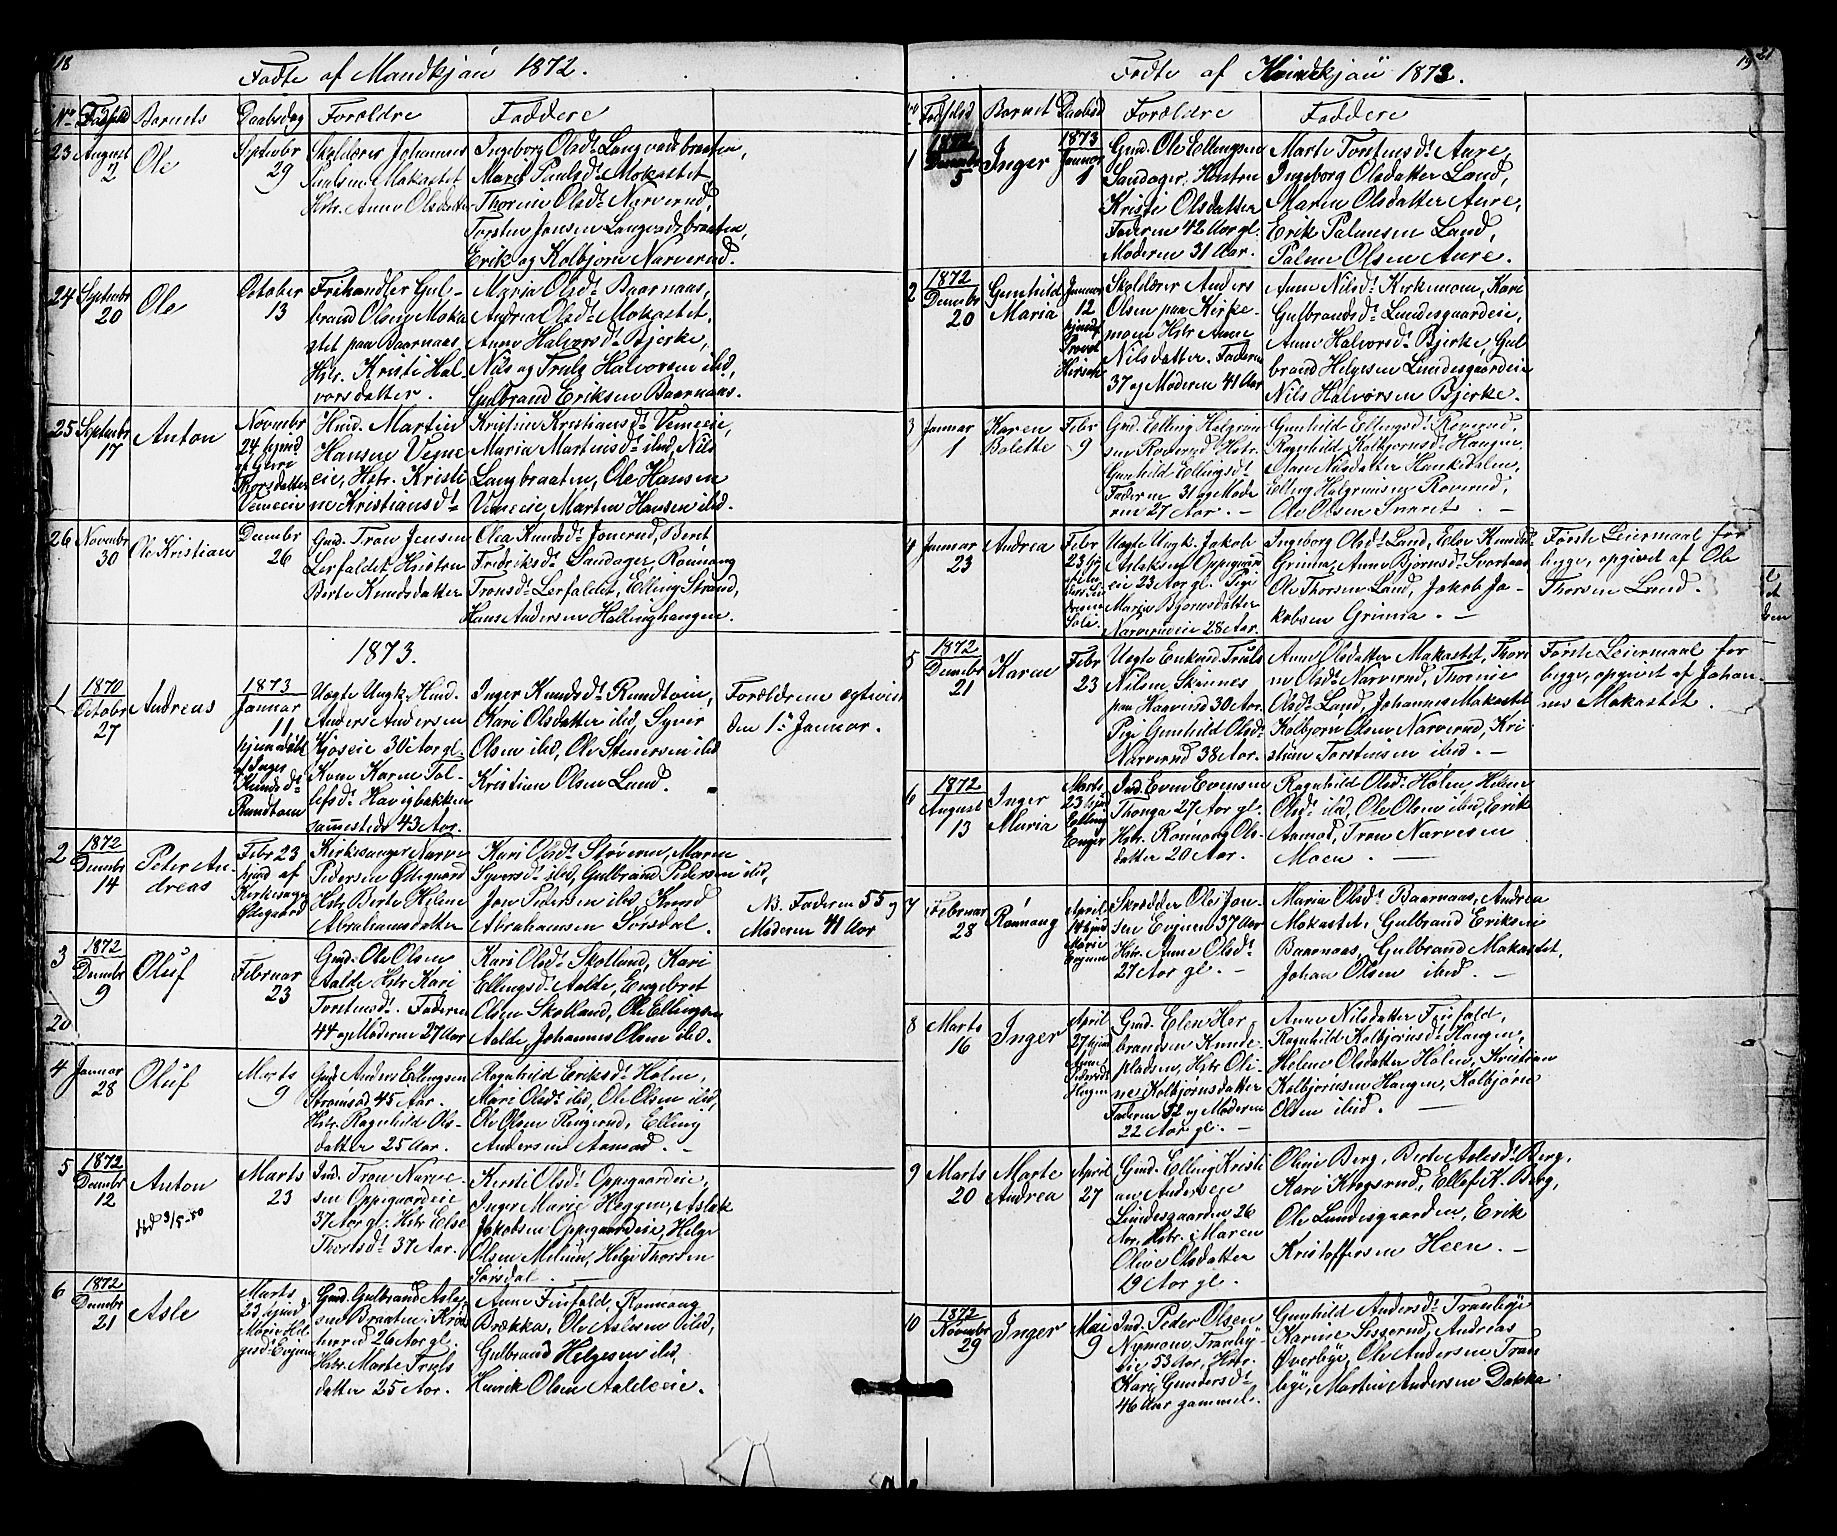 18
Fødte af Mandkjøn 1872.
No Fødselsd Barnets Daabsdag Forældre Faddere
23 August 2 Ole Septembr 29
Skolelærer Johannes
Paulsen Mokastet
Hstr. Anne Olsdatter
Ingeborg Olsdr Langvadsbraaten,
Marit Paulsdr Mokastet
Thorine Olsdr Narverud,
Torsten Jensen Langvadsbraaten,
Erik og Kolbjørn Narverud.
24 Septembr 20 Ole October 13
Frihandler Gul-
brand Olsen Moka
stet paa Baarnaas,
Hstr. Kristi Hal-
vorsdatter.
Maria Olsdr Baarnaas,
Andrea Olsdr Mokastet,
Anne Halvorsdr Bjerke,
Nils og Truls Halvorsen ibid,
Gulbrand Eriksen Baarnaas.
25 Septembr 17 Anton Novembr
24 hjmd
Thorsdatter
Vemeeie
Hmd. Martin
Hansen Veme
eie, Hstr. Kristi
ne Kristiansdr
Kristin Kristiansdr Vemeeie,
Maria Martinsdr ibid, Nils
Langbraaten, Ole Hansen
Vemeeie, Martin Hansen ibid.
26 Novembr 30 Ole Kristian Decembr 26
Gmd. Tron Jensen
Lerfaldet Hustru
Berte Knudsdatter
Olea Knudsdr Jonerud, Beret
Fredriksdr Sandager, Rønnaug
Tronsdr Lerfaldet, Elling Strand,
Hans Andersen Hallinghaugen.
1873.
1 1870 Octobr 27 Andreas 1873 Januar 11
hjemmedøbt
af Inger
Knudsdr
Rundtom
Uegte Ungk. Hmd.
Anders Andersen
Kjoseie 30 Aar gl.
Kone Karen Tol-
lefsdr Havigbakken
sammesteds 43 Aar.
Inger Knudsdr Rundtom,
Kari Olsdatter ibid, Syver
Olsen ibid, Ole Stenersen ibid
Kristian Olsen Land.
Forældrene egtevie
den 1ste Januar.
2 1872 Decembr 14 Peter An-
dreas
Febr 23
hjmd af
Kirkesanger
Ødegaard
Kirkesanger Narve
Pedersen Ødegaard
Hstr Berte Helene
Abrahamsdatter
Kari Olsdr Støveren, Maren
Syversdr ibid, Gulbrand Pedersen ibid,
Jon Pedersen ibid
Abrahamsen Sørsdal.
NB. Faderen 55 og
Moderen 41 Aar
3 1872 Decembr 9 Oluf Februar 23
Gmd. Ole Olsen
Aalde Hstr Kari
Torstensdr. Faderen
44 og Moderen 27 Aar
Kari Olsdr Skotland, Kari
Ellingsdr Aalde, Engebret
Olsen Skotland, Ole Ellingsen
Aalde, Johannes Olsen ibid.
20
4 Januar 28 Oluf Marts 9
Gmd Anders Ellingsen
Strømsød 45 Aar.
Hstr. Ragnhild Ols-
datter 25 Aar.
Ragnhild Eriksdr Holm,
Mari Olsdr ibid, Ole Olsen ibid,
Ole Olsen Ringerud, Elling
Andersen Aamod. -
5 1872 Decembr 12 Anton Marts 23
3/5-50
Ind. Tron Narve-
sen Oppegaardeie
37 Aar gl. Hstr. Else
Thorsdr 37 Aar.
Kirsti Olsdr Oppegaardeie,
Inger Marie Heggen, Aslak
Jakobsen Oppegaardeie, Helge
Olsen Melum, Helge Thorsen
Sørsdal.
6 1872 Decembr 21 Asle Marts
23 hjmd
Marie Hel-
gesdr Enjum
Gmd. Gulbrand Asle-
sen Braaten, Krøds-
herred 26 Aar gl.
Hstr. Marte Truls
datter 25 Aar.
Anne Finfald, Rønnaug
Brækka, Ole Aslesen ibid,
Gulbrand Helgesen ibid,
Henrik Olsen Aaldeeie.
19 21
Fødte af Kvindekjøn 1873.
No Fødselsd Barnet Daabsd Forældre Faddere
1 1872 Decembr 5 Inger 1873 Januar 1
Gmd. Ole Ellingsen
Sandager, Hustru
Kristi Olsdatter
Faderen 42 Aar gl.
Moderen 31 Aar.
Marte Torstensdr Aure,
Ingeborg Olsdatter Land,
Maren Olsdatter Aure,
Erik Palmesen Land,
Palme Olsen Aure.
2 1872 Decembr 20 Gunhild
Maria
Januar
12
hjmd
Provst
Hirsch
Skolelærer Anders
Olsen paa Kirke-
moen Hstr Anne
Nilsdatter. Faderen
37 og Moderen 41 Aar
Anne Nilsdr Kirkemoen, Kari
Gulbrandsdr Lundesgaardeie,
Anne Halvorsdr Bjerke, Gul
brand Helgesen Lundesgaardeie
Nils Halvorsen Bjerke.
3 Januar 1 Karen
Bolette
Febr 9
Gmd. Elling Helgrim
sen Roverud Hstr.
Gunhild Ellingsdr
Faderen 31 og Mode
ren 27 Aar. -
Gunhild Ellingsdr Roverud,
Ragnhild Kolbjørnsdr Haugen
Mari Nilsdatter Hankedalen,
Elling Helgrimsen Roverud,
Ole Olsen Svaret. -
4 Januar 23 Andrea Febr
23 hj
Uegte Ungk. Jakob
Aslaksen Oppegaar
eie 23 Aar gl. Pige
Maria Bjørnsdatter
Narverudeie 28 Aar.
Ingeborg Olsdr Land, Elen Knudsdr
Grimia, Anne Bjørnsdr Svartaas
Ole Thorsen Land, Jakob Ja-
kobsen Grimia. -
Første Leiermaal for
begge, opgivet af Ole
Thorsen Land.
5 1872 Decembr 21 Karen Febr 23
Uegte Enkmd Truls
Nilsen Skinnes
paa Haaverud 30 Aar.
Pige Gunhild Olsdr
Narverud 38 Aar.
Anne Olsdatter Mokastet, Thori
ne Olsdr Narverud, Thorine
Olsdr Land, Johannes Mokastet
Kolbjørn Olsen Narverud, Kri
stian Torstensen ibid. -
Første Leiermaal for
begge, opgivet af Johan
nes Mokastet.
6 1872 August 13 Inger
Maria
Marts
23 hjmd
Elling
Enger
Ind. Even Evensen
Thonga 27 Aar gl.
Hstr. Rønnaug Ols-
datter 20 Aar.
Ragnhild Olsdr Holm, Helene
Olsdr ibid, Ole Olsen ibid, Erik
Aamod, Tron Narvesen
Moen. -
7 Februar 28 Rønnaug April
14 hjmd
Marie
Enjum
Skrædder Ole Jon-
sen Enjum 37 Aar
Hstr. Anne Olsdr
27 Aar gl. -
Maria Olsdr Baarnaas, Andrea
Mokastet, Gulbrand Eriksen
Baarnaas, Gulbrand Mokastet,
Johan Olsen ibid. -
8 Marts 16 Inger April
27 hjmd
Haugen
Gmd. Elen Her-
brandsen Knude-
pladsen, Hstr Oli-
ne Kolbjørnsdatter
Faderen 32 og Moderen
22 Aar gl. -
Anne Nilsdatter Finfald,
Ragnhild Kolbjørnsdr Haugen,
Helene Olsdatter Holm, Kristian
Kolbjørnsen Haugen, Kolbjørn
Olsen ibid. -
9 Marts 20 Marte
Andrea
April 27
Gmd. Elling Kristi
an Anderseie
Lundesgaarden 26
Aar, Hstr. Maren
Olive Olsdatter
19 Aar gl.
Oline Berg, Berte Aslesdr Berg,
Kari Krogsrud, Ellef K. Berg,
Ole Lundesgaarden, Erik
Kristoffersen Heen. -
10 1872 Novembr 29 Inger Mai 9
Ind. Peder Olsen
Nymoen, Tranby
eie 53 Aar, Hstr.
Kari Gundersdr
46 Aar gammel.
Gunhild Andersdr Tranbyeie
Karine Sesserud, Andreas
Øverbye, Ole Andersen Tran
bye, Martin Andersen Dakka.